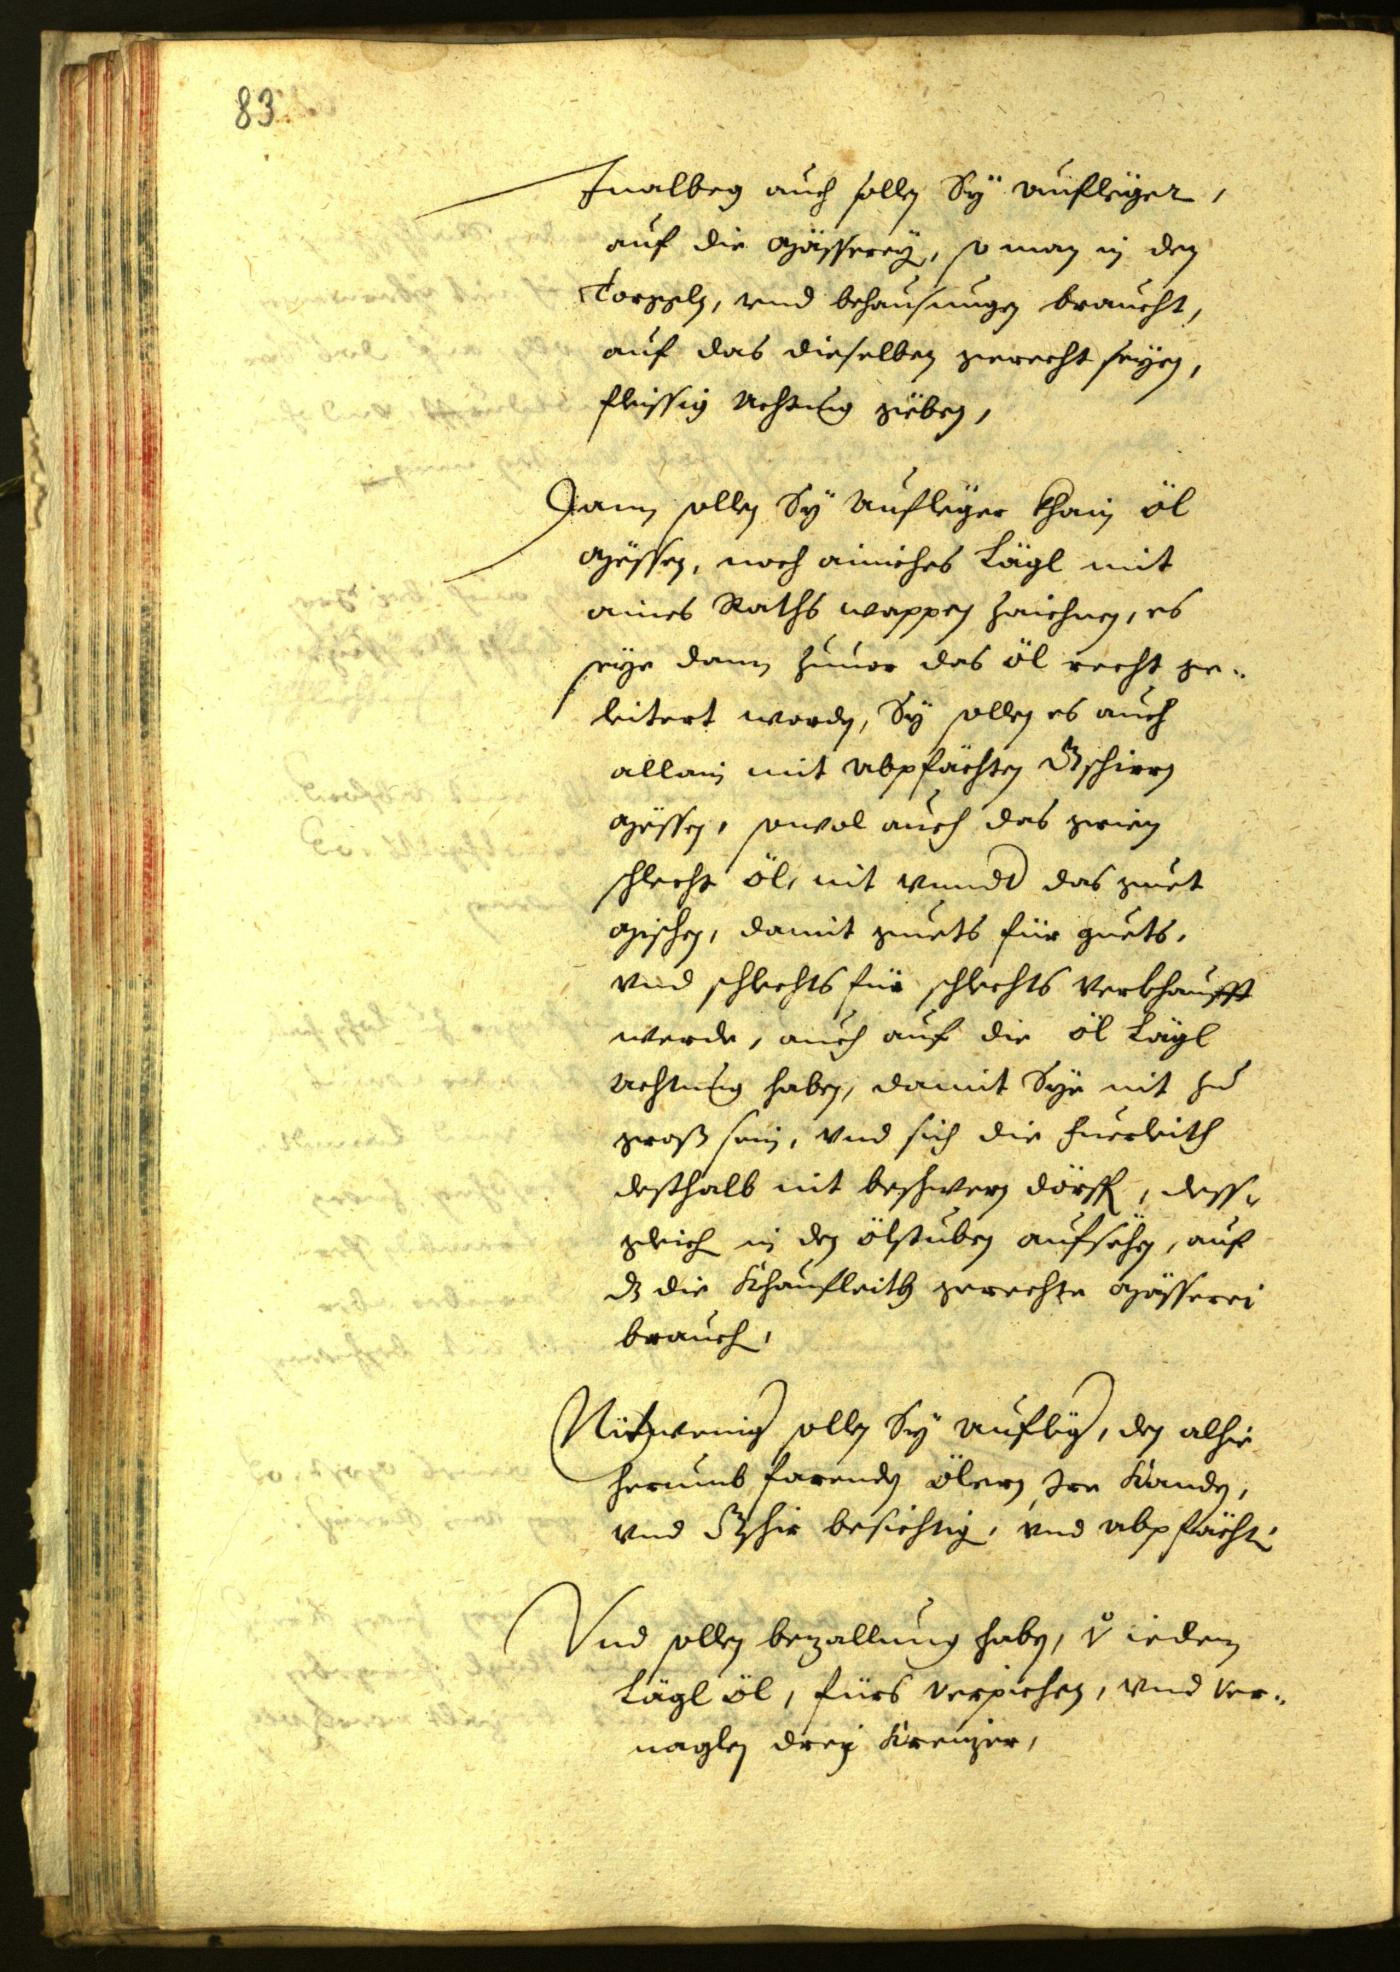 83
Inalbeg auch sollen Sÿ aufleger,
auf die Mässereÿ, so man in den
Torgglen, vnd behausungen braucht,
auf das dieselben gerecht seÿen,
fleissig Achtung geben,
Dann sollen Sÿ Aufleger khain öl
Messen, noch ainiches Lägl mit
aines Raths wappen zaichnen, es
seÿe dann zuuor das öl recht ge-
leitert worden, Sÿ sollen es auch
allain mit abpfächten Gschirrn
Messen, sowol auch das grien
schlecht öl, nit vnndter das guet
Mischen, damit guets für guets,
vnd schlechts für schlechts verkhaufft
werde, auch auf die öl Lägl
Achtung haben, damit Sÿe nit zu
groß sein, vnd sich die fuerleith
desthalb nit beschwern dörffen, dess-
gleich in den ölstuben aufsehen, auf
dz die Khaufleith gerechte Mässerei
brauchen,
Nit weniger sollen Sÿ aufleger, den alhie
herumb farenden ölern Ire Kanden,
vnd Gschir besichtigen, vnd abpfächten
Vnd sollen bezallung haben, von ieden
Lägl öl, fürs verpichen, vnd ver-
naglen dreÿ Kreuzer,